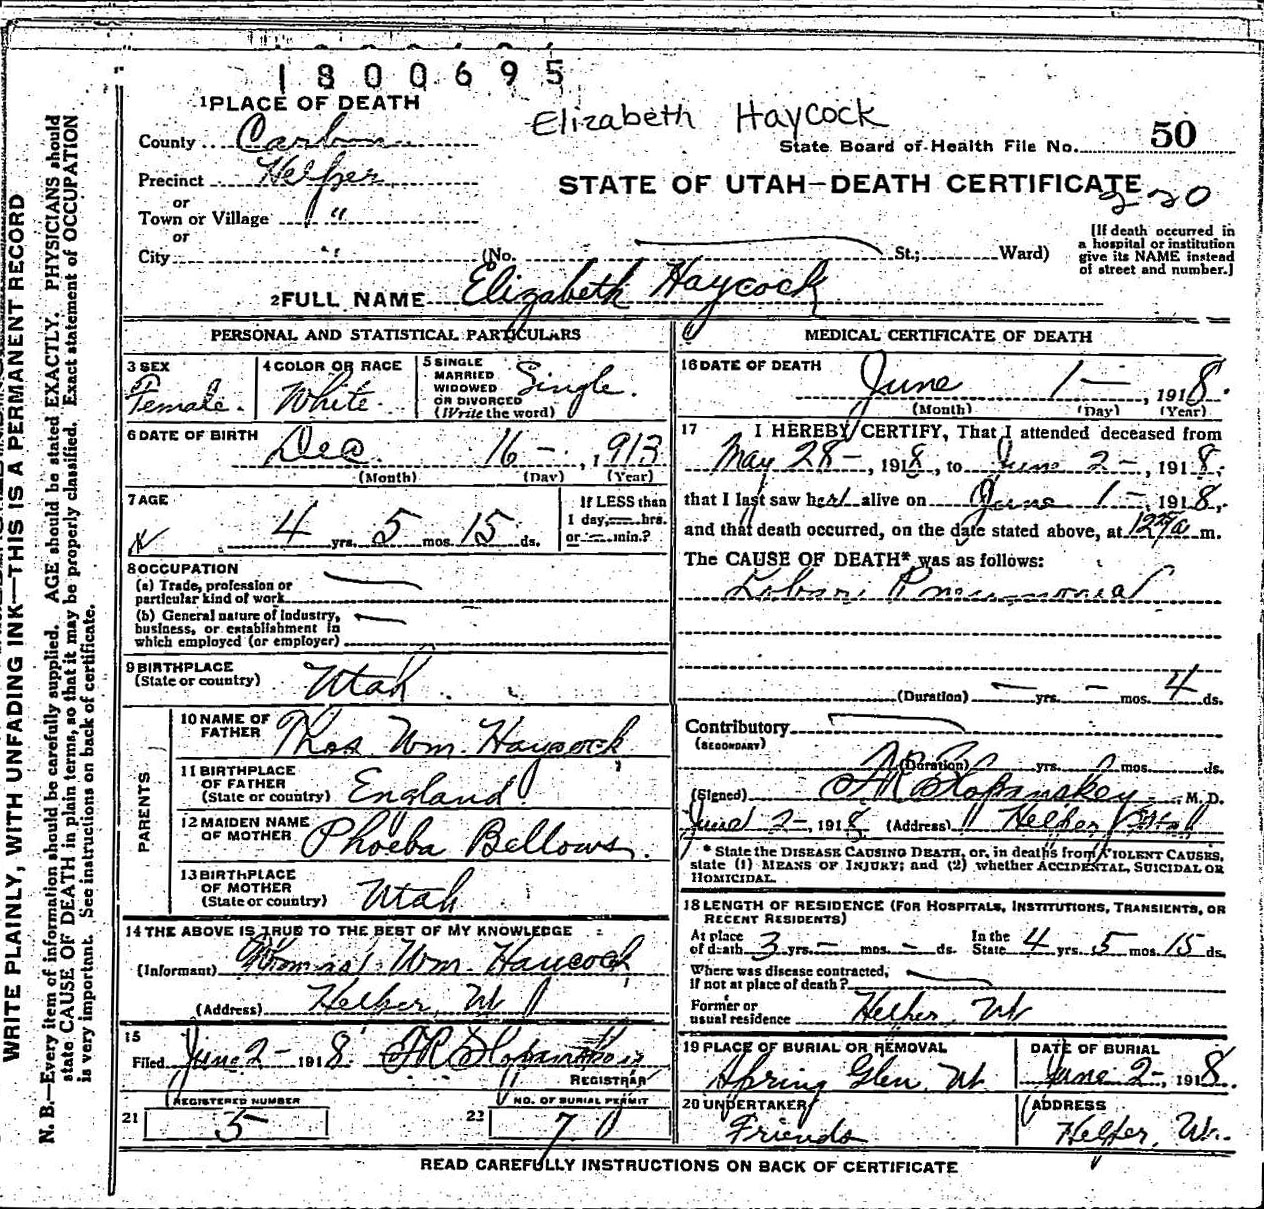 1800695
Elizabeth Haycock
1 PLACE OF DEATH
County Carbon
State Board of Health File No. 50
Precinct Helper
STATE OF UTAH—DEATH CERTIFICATE
220
or
Town or Village "
or
City " (No. St.; Ward)
[If death occurred in
a hospital or institution
give its NAME instead
of street and number.]
2 FULL NAME Elizabeth Haycock
PERSONAL AND STATISTICAL PARTICULARS
3 SEX
Female.
4 COLOR OR RACE
White.
5 SINGLE
MARRIED
WIDOWED
OR DIVORCED
(Write the word)
Single.
6 DATE OF BIRTH
Dec. 16 —, 1913
(Month) (Day) (Year)
7 AGE
4 yrs. 5 mos. 15 ds.
If LESS than
1 day, — hrs.
or — min.?
8 OCCUPATION
(a) Trade, profession or
particular kind of work
(b) General nature of industry,
business, or establishment in
which employed (or employer)
9 BIRTHPLACE
(State or country) Utah.
PARENTS
10 NAME OF
FATHER Thos. Wm. Haycock
11 BIRTHPLACE
OF FATHER
(State or country) England
12 MAIDEN NAME
OF MOTHER Phoeba Bellows.
13 BIRTHPLACE
OF MOTHER
(State or country) Utah
14 THE ABOVE IS TRUE TO THE BEST OF MY KNOWLEDGE
(Informant) Thomas Wm. Haycock
(Address) Helper, Ut
15
Filed June 2 - 1918.
REGISTRAR
REGISTERED NUMBER
21 5
NO. OF BURIAL PERMIT
22 7
MEDICAL CERTIFICATE OF DEATH
16 DATE OF DEATH
June 1 —, 1918.
(Month) (Day) (Year)
17 I HEREBY CERTIFY, That I attended deceased from
May 28 —, 1918, to June 2 -, 1918.
that I last saw her alive on June 1 - 1918,
and that death occurred, on the date stated above, at 12 a m.
The CAUSE OF DEATH* was as follows:
Lobar Pneumonia
(Duration) — yrs. — mos. 4 ds.
Contributory
(SECONDARY)
(Duration) yrs. mos. ds.
(Signed) M. D.
June 2 -, 1918 (Address) Helper Utah
* State the DISEASE CAUSING DEATH, or, in deaths from VIOLENT CAUSES,
state (1) MEANS OF INJURY; and (2) whether ACCIDENTAL, SUICIDAL OR
HOMICIDAL.
18 LENGTH OF RESIDENCE (FOR HOSPITALS, INSTITUTIONS, TRANSIENTS, OR
RECENT RESIDENTS)
At place
of death 3 yrs. — mos. — ds.
In the
State 4 yrs. 5 mos. 15 ds.
Where was disease contracted,
if not at place of death?
Former or
usual residence Helper, Ut
19 PLACE OF BURIAL OR REMOVAL
Spring Glen, Ut.
DATE OF BURIAL
June 2 -, 1918.
20 UNDERTAKER
Friends
ADDRESS
Helper, Ut.
READ CAREFULLY INSTRUCTIONS ON BACK OF CERTIFICATE
WRITE PLAINLY, WITH UNFADING INK—THIS IS A PERMANENT RECORD
N. B.—Every item of information should be carefully supplied. AGE should be stated EXACTLY. PHYSICIANS should
state CAUSE OF DEATH in plain terms, so that it may be properly classified. Exact statement of OCCUPATION
is very important. See instructions on back of certificate.